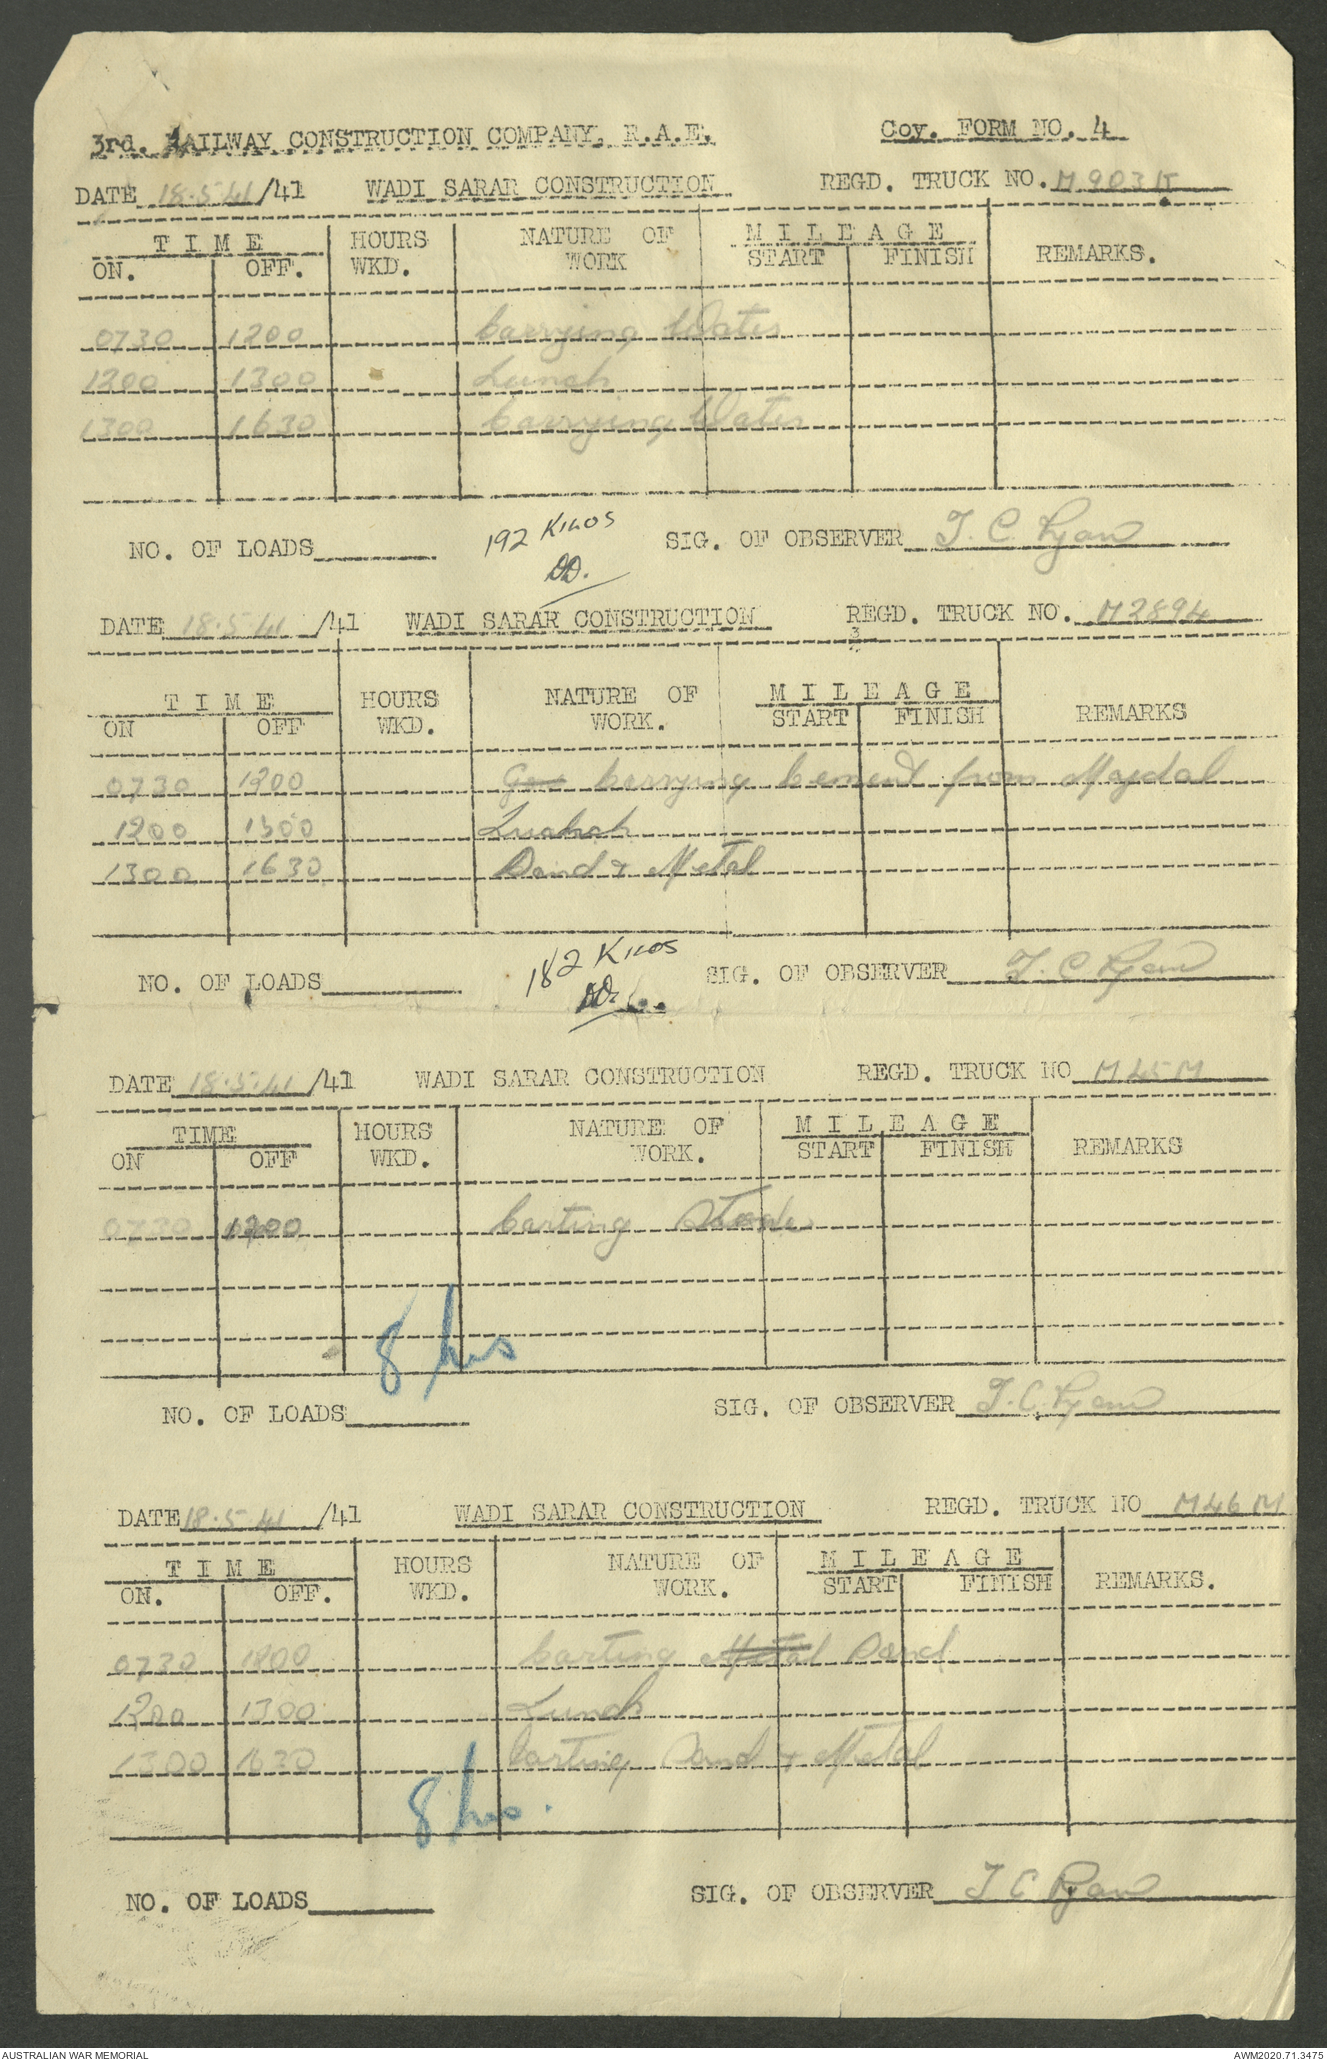 3rd. RAILWAY CONSTRUCTION COMPANY, R.A.E. Coy. FORM NO. 4
DATE 18.5.41 /41 WADI SARAR CONSTRUCTION REGD. TRUCK NO.
TIME HOURS NATURE OF MILEAGE
ON. OFF. WKD. WORK START FINISH REMARKS.
0730 1200 Carrying Water
1200 1300 Lunch
1300 1630 Carrying Water
NO. OF LOADS 192 KILOS SIG. OF OBSERVER T. C. Ryan
DD.
DATE 18.5.41 /41 WADI SARAR CONSTRUCTION REGD. TRUCK NO. M2894
3
TIME HOURS NATURE OF MILEAGE
ON OFF WKD. WORK. START FINISH REMARKS
0730 1200 Carrying Cement from Majdal
1200 1300 Lunch
1300 1630 Sand & Metal
NO. OF LOADS 182 KILOS SIG. OF OBSERVER T. C Ryan
DD.
DATE 18.5.41 /41 WADI SARAR CONSTRUCTION REGD. TRUCK NO M45M
TIME HOURS NATURE OF MILEAGE
ON OFF WKD. WORK. START FINISH REMARKS
0730 1200 Carting
8 hrs
NO. OF LOADS SIG. OF OBSERVER T. C. Ryan
DATE 18.5.41 /41 WADI SARAR CONSTRUCTION REGD. TRUCK NO M46M
TIME HOURS NATURE OF MILEAGE
ON. OFF. WKD. WORK. START FINISH REMARKS.
0730 1200 Carting Metal Sand
1200 1300 Lunch
1300 1630 Carting Sand & Metal
8 hrs.
NO. OF LOADS SIG. OF OBSERVER T C Ryan
AUSTRALIAN WAR MEMORIAL AWM2020.71.3475